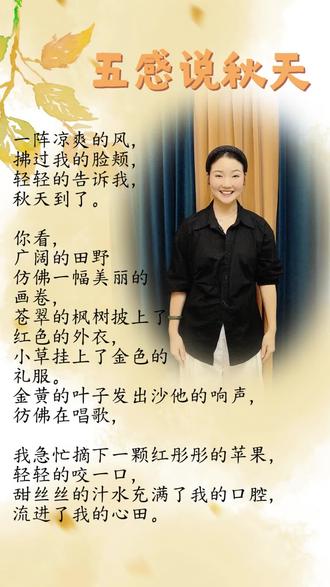 五感说秋天
一阵凉爽的风，
拂过我的脸颊，
轻轻的告诉我，
秋天到了。
你看，
广阔的田野
仿佛一幅美丽的
画卷，
苍翠的枫树披上了
红色的外衣，
小草挂上了金色的
礼服。
金黄的叶子发出沙他的响声，
仿佛在唱歌，
我急忙摘下一颗红彤彤的苹果，
轻轻的咬一口，
甜丝丝的汁水充满了我的口腔，
流进了我的心田。